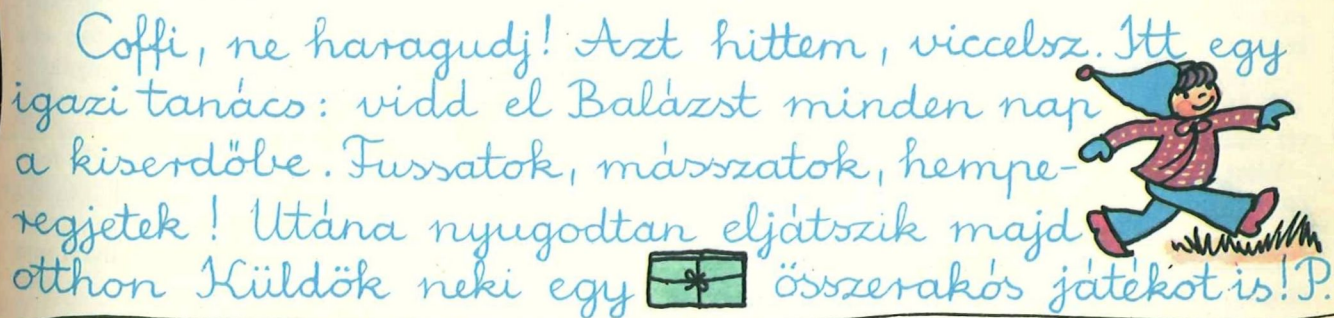 Coffi, ne haragudj! Azt hittem, viccelsz. Itt egy
igazi tanács: vidd el Balázst minden nap
a kiserdőbe. Fussatok, másszatok, hempe-
regjetek! Utána nyugodtan eljátszik majd
otthon Küldök neki egy összerakós játékot is! P.